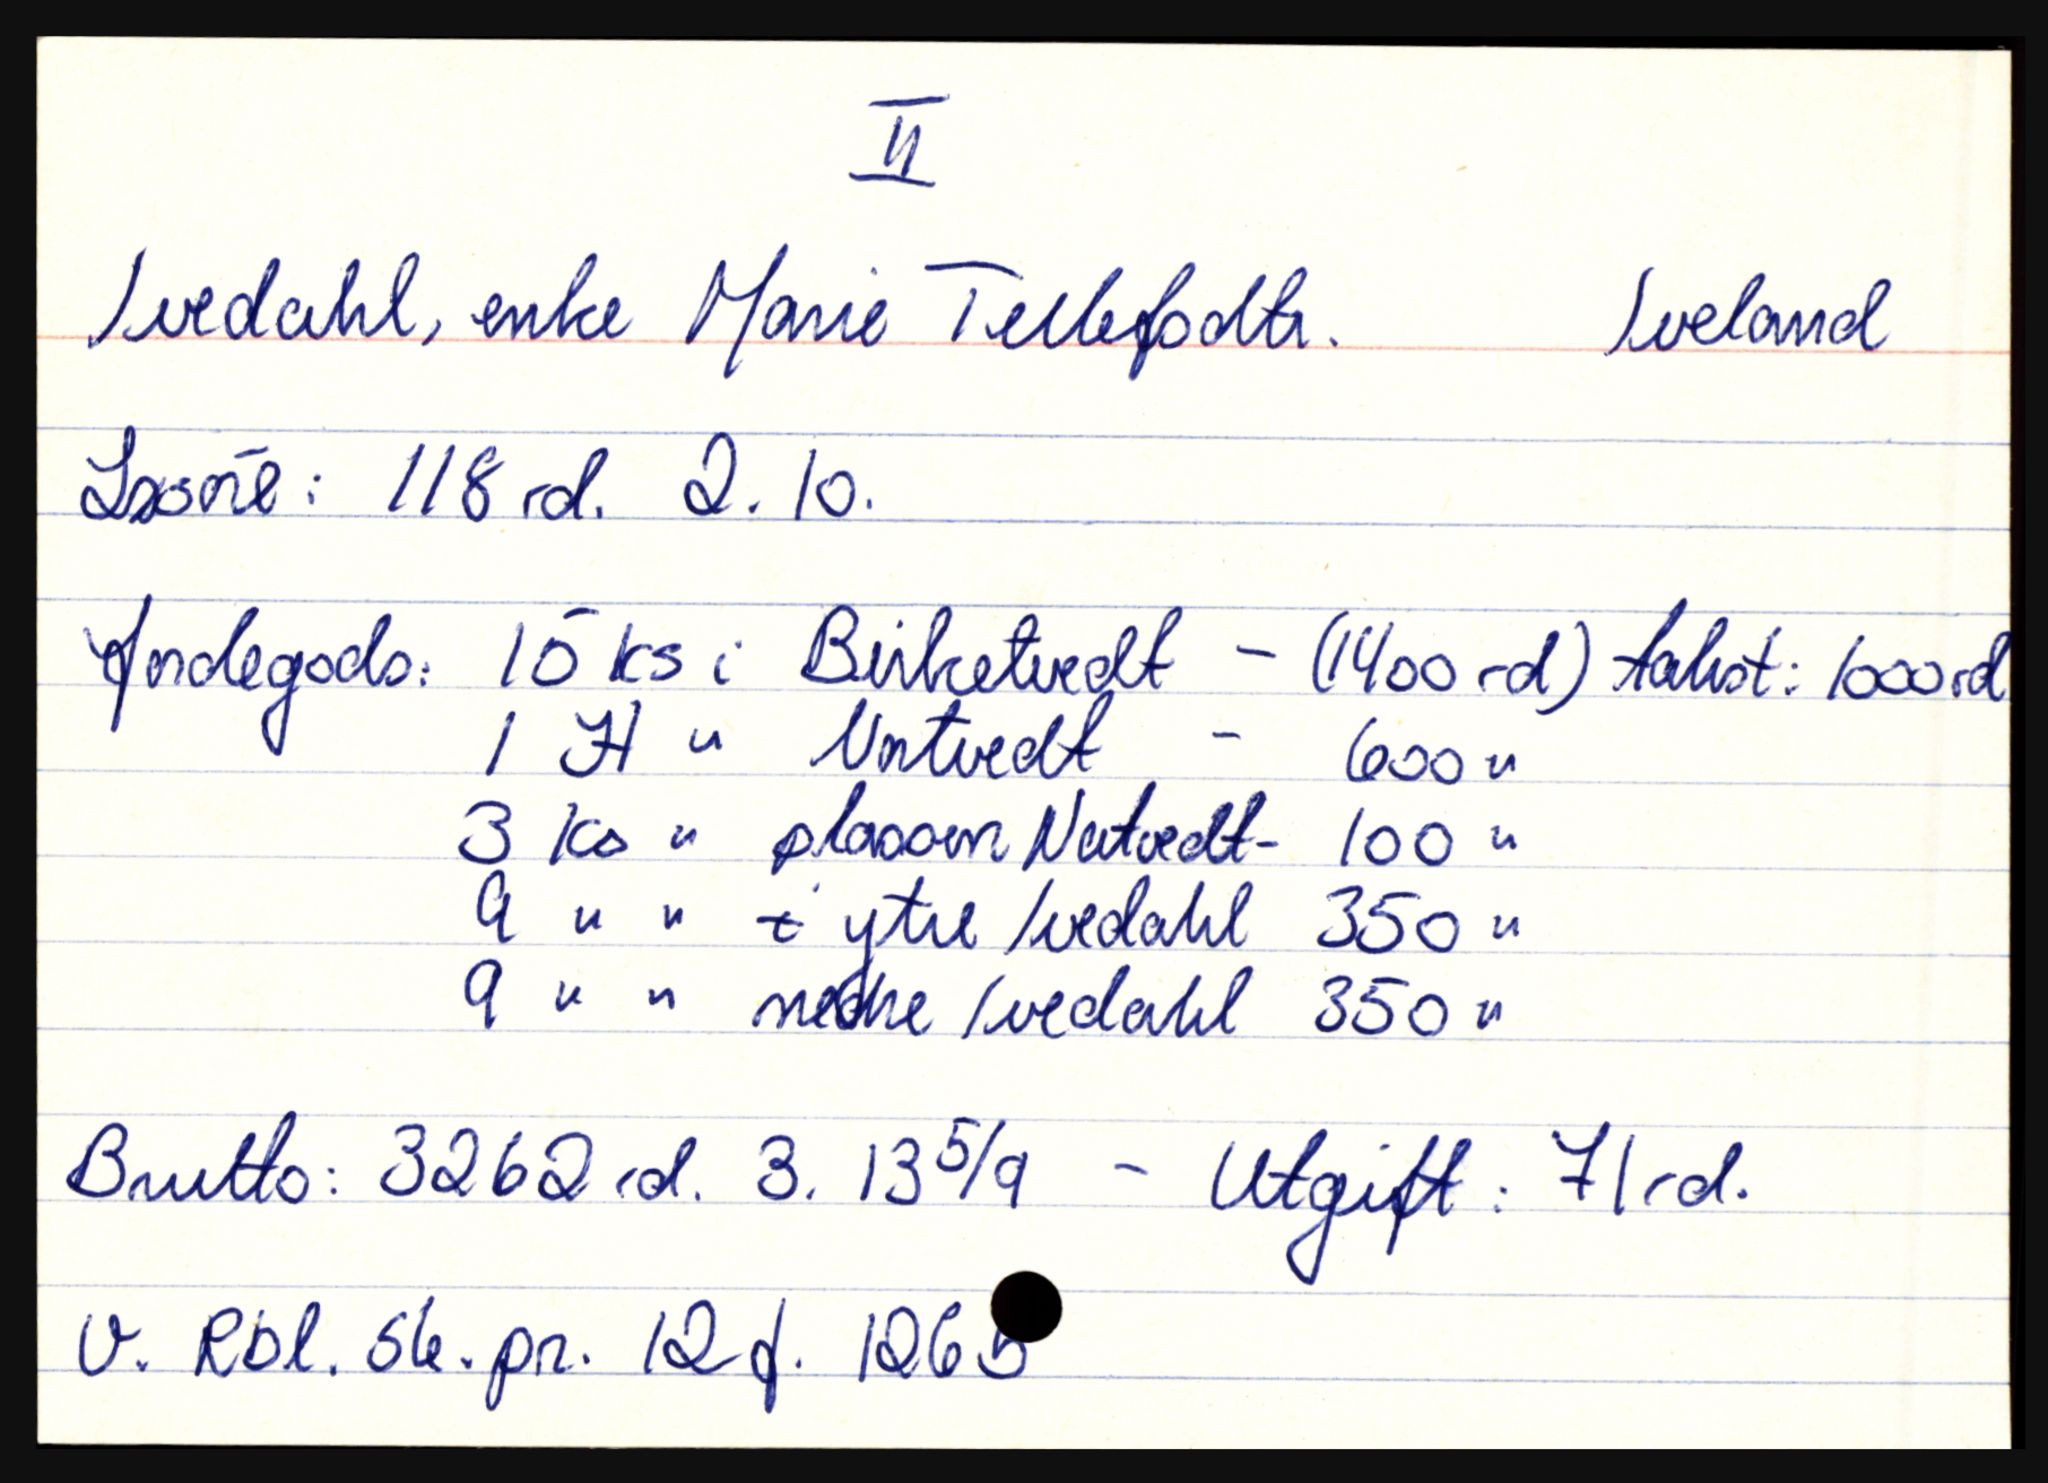 II
Ivedahl, enke Marie Tellefsdtr. Iveland
Løsøre: 118 rd. 2. 10.
Jordegods: 15 ks i Birketvedt - (1400 rd) takst: 1000 rd
1 H " Natvedt - 600 "
3 ks " plassen Natvedt - 100 "
9 " " i ytre Ivedahl 350 "
9 " " nedre Ivedahl 350 "
Brutto: 3262 rd. 3. 13 5/9 - Utgift: 71 rd.
V. Rbl. sk. pr. 12 f. 1265